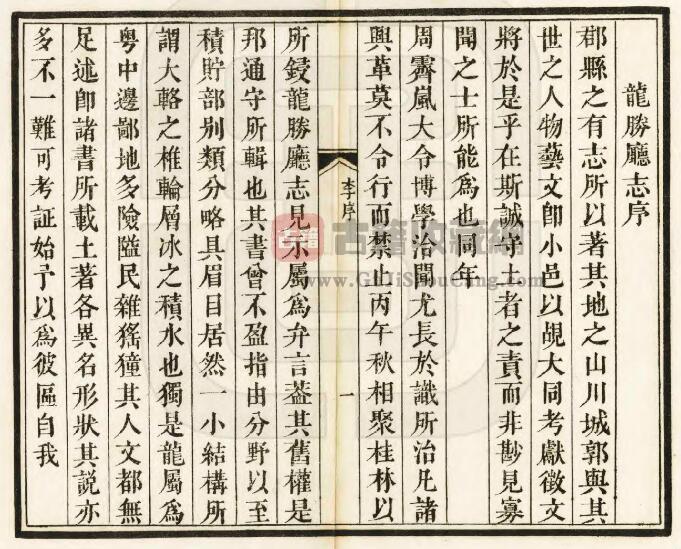 龍勝廳志序
郡縣之有志所以著其地之山川城郭與其
世之人物藝文卽小邑以覘大同考獻徵文
將於是乎在斯誠守土者之責而非尠見寡
聞之士所能爲也同年
周霽嵐大令博學治聞尤長於識所治凡諸
興革莫不令行而禁止丙午秋相聚桂林以
李序
一
所鋟龍勝廳志見示屬爲弁言葢其舊權是
邦通守所輯也其書曾不盈指由分野以至
積貯部别類分略具眉目居然一小結構所
謂大輅之椎輪層冰之積水也獨是龍屬爲
粵中邊鄙地多險隘民雜猺獞其人文都無
足述卽諸書所載土著各異名形狀其説亦
多不一難可考証始予以爲彼區自我
古籍 古籍收藏網
www.GuJiShouCang.com